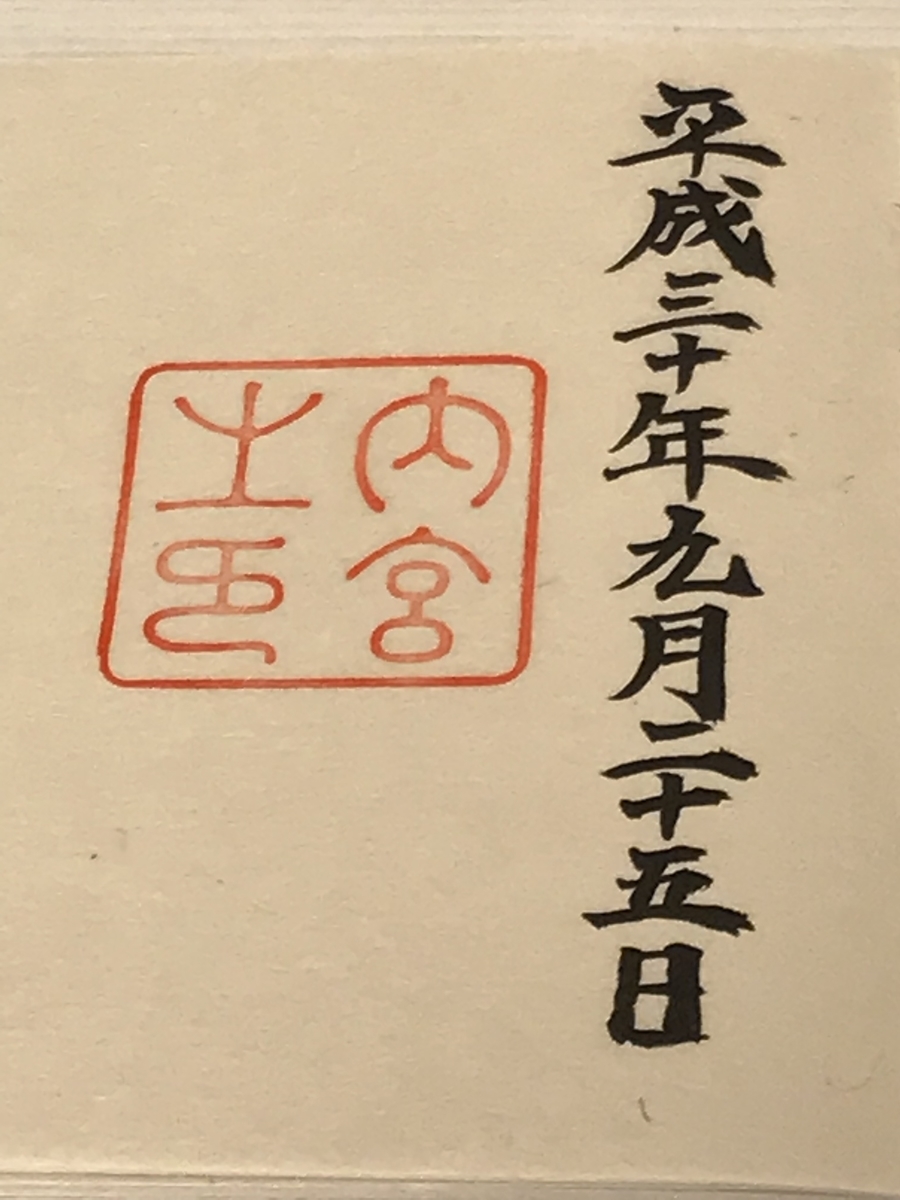 平成三十年九月二十五日
内宮
之印